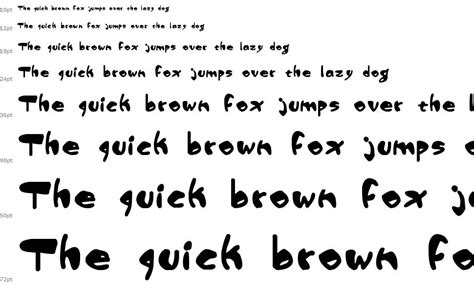 10pt The quick brown fox jumps over the lazy dog
12pt The quick brown fox jumps over the lazy dog
18pt The quick brown fox jumps over the lazy dog
24pt The quick brown fox jumps over the lazy dog
36pt The quick brown fox jumps over the l
48pt The quick brown fox jumps o
60pt The quick brown fox j
72pt The quick brown fo